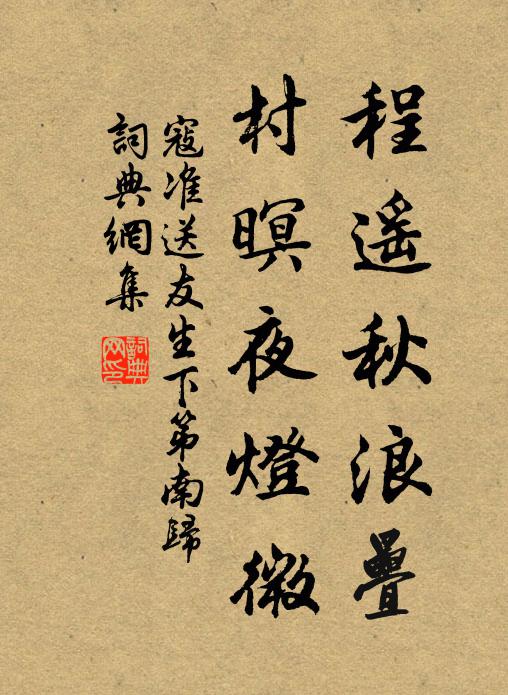 程遥秋浪疊
村暝夜燈微
寇准送友生下第南歸
詞典網集
詞典网印